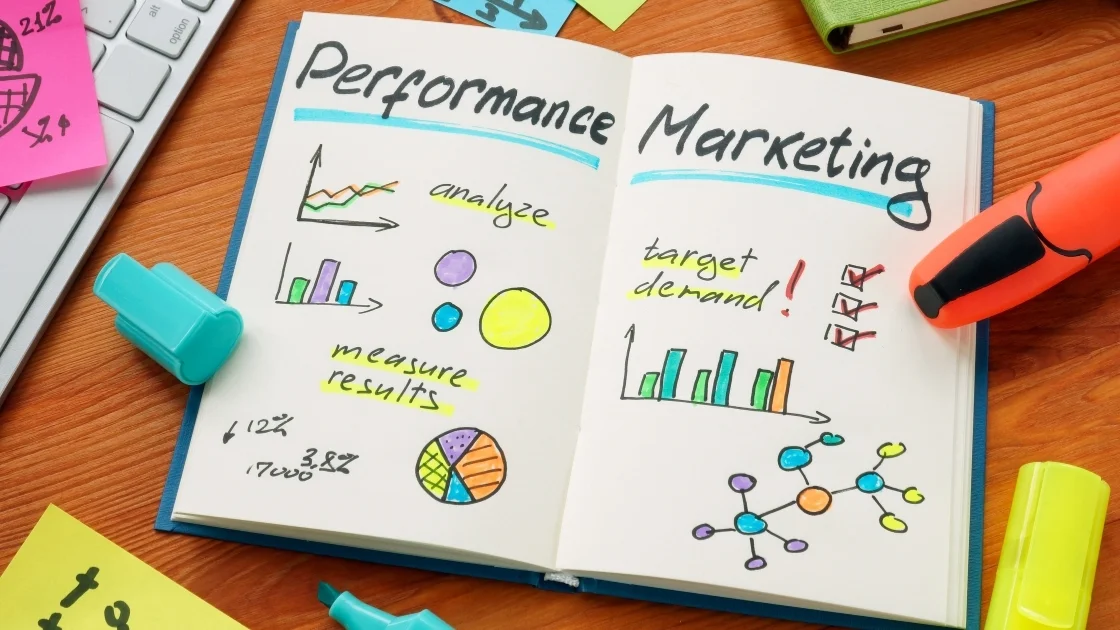 Performance
analyze
measure
results
12%
17000
3.8%
Marketing
target
demand!
21%
alt
option
to